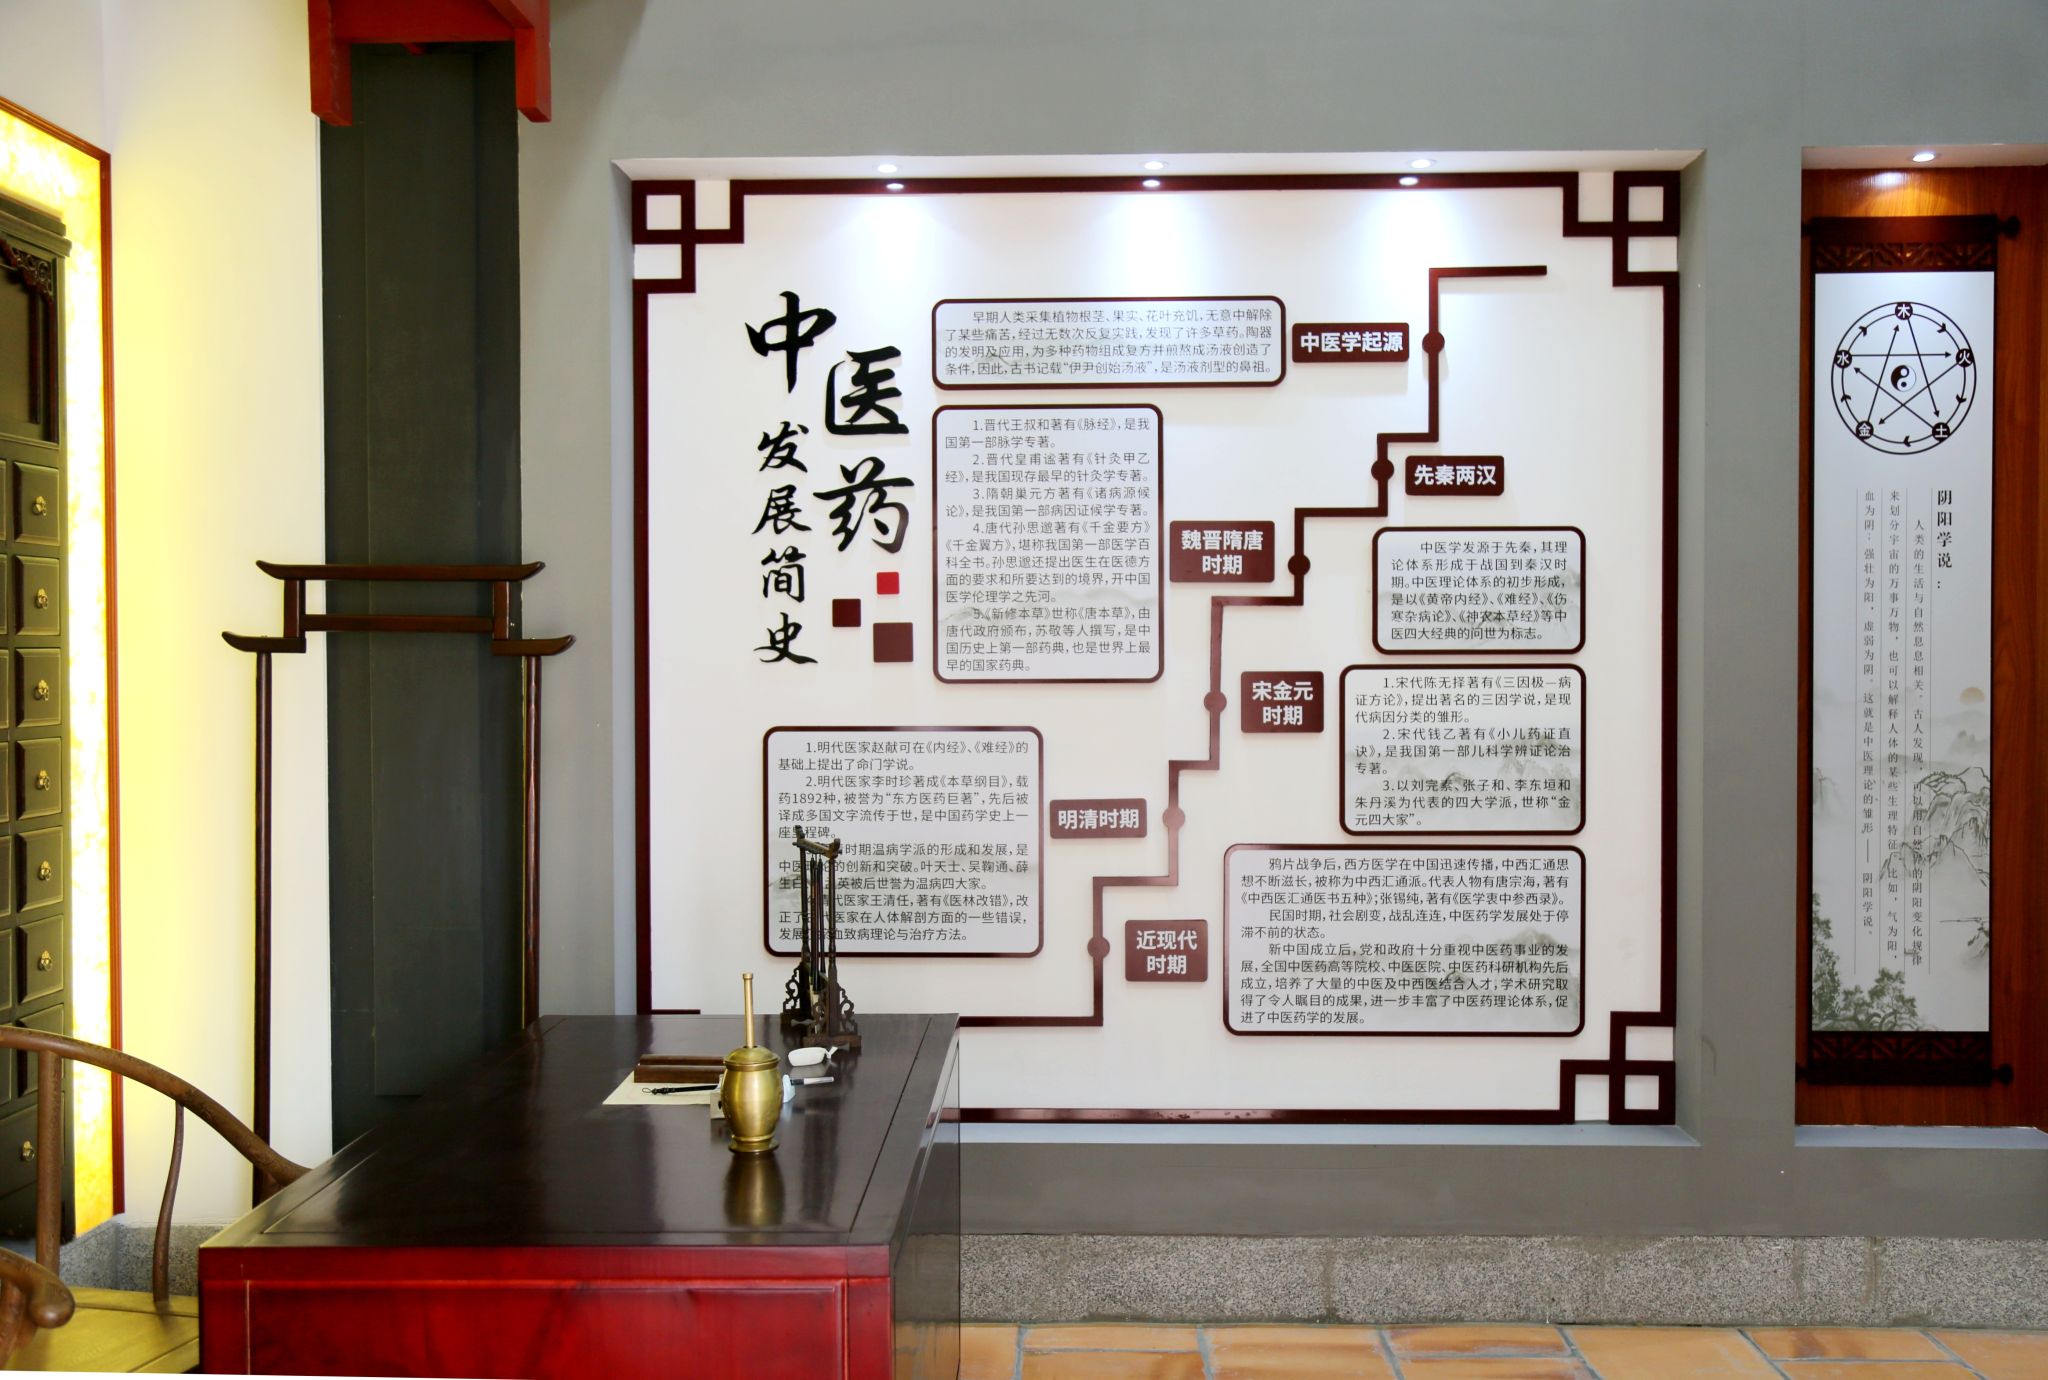 中医药
发展简史
早期人类采集植物根茎、果实、花叶充饥，无意中解除
了某些痛苦，经过无数次反复实践，发现了许多草药。陶器
的发明及应用，为多种药物组成复方并煎熬成汤液创造了
条件，因此，古书记载“伊尹创始汤液”，是汤液剂型的鼻祖。
中医学起源
先秦两汉
中医学发源于先秦，其理
论体系形成于战国到秦汉时
期。中医理论体系的初步形成，
是以《黄帝内经》、《难经》、《伤
寒杂病论》、《神农本草经》等中
医四大经典的问世为标志。
1.晋代王叔和著有《脉经》，是我
国第一部脉学专著。
2.晋代皇甫谧著有《针灸甲乙
经》，是我国现存最早的针灸学专著。
3.隋朝巢元方著有《诸病源候
论》，是我国第一部病因证候学专著。
4.唐代孙思邈著有《千金要方》
《千金翼方》，堪称我国第一部医学百
科全书。孙思邈还提出医生在医德方
面的要求和所要达到的境界，开中国
医学伦理学之先河。
5.《新修本草》世称《唐本草》，由
唐代政府颁布，苏敬等人撰写，是中
国历史上第一部药典，也是世界上最
早的国家药典。
魏晋隋唐
时期
宋金元
时期
1.宋代陈无择著有《三因极一病
证方论》，提出著名的三因学说，是现
代病因分类的雏形。
2.宋代钱乙著有《小儿药证直
诀》，是我国第一部儿科学辨证论治
专著。
3.以刘完素、张子和、李东垣和
朱丹溪为代表的四大学派，世称“金
元四大家”。
1.明代医家赵献可在《内经》、《难经》的
基础上提出了命门学说。
2.明代医家李时珍著成《本草纲目》，载
药1892种，被誉为“东方医药巨著”，先后被
译成多国文字流传于世，是中国药学史上一
座里程碑。
时期温病学派的形成和发展，是
中医理论的创新和突破。叶天士、吴鞠通、薛
生白 英被后世誉为温病四大家。
代医家王清任，著有《医林改错》，改
正了 代医家在人体解剖方面的一些错误，
发展 血致病理论与治疗方法。
明清时期
近现代
时期
鸦片战争后，西方医学在中国迅速传播，中西汇通思
想不断滋长，被称为中西汇通派。代表人物有唐宗海，著有
《中西医汇通医书五种》；张锡纯，著有《医学衷中参西录》。
民国时期，社会剧变，战乱连连，中医药学发展处于停
滞不前的状态。
新中国成立后，党和政府十分重视中医药事业的发
展，全国中医药高等院校、中医医院、中医药科研机构先后
成立，培养了大量的中医及中西医结合人才，学术研究取
得了令人瞩目的成果，进一步丰富了中医药理论体系，促
进了中医药学的发展。
木
火
土
金
水
阴阳学说：
人类的生活与自然息息相关。古人发现，可以用自然界的阴阳变化规律
来划分宇宙的万事万物，也可以解释人体的某些生理特征。比如，气为阳，
血为阴；强壮为阳，虚弱为阴。这就是中医理论的雏形——阴阳学说。